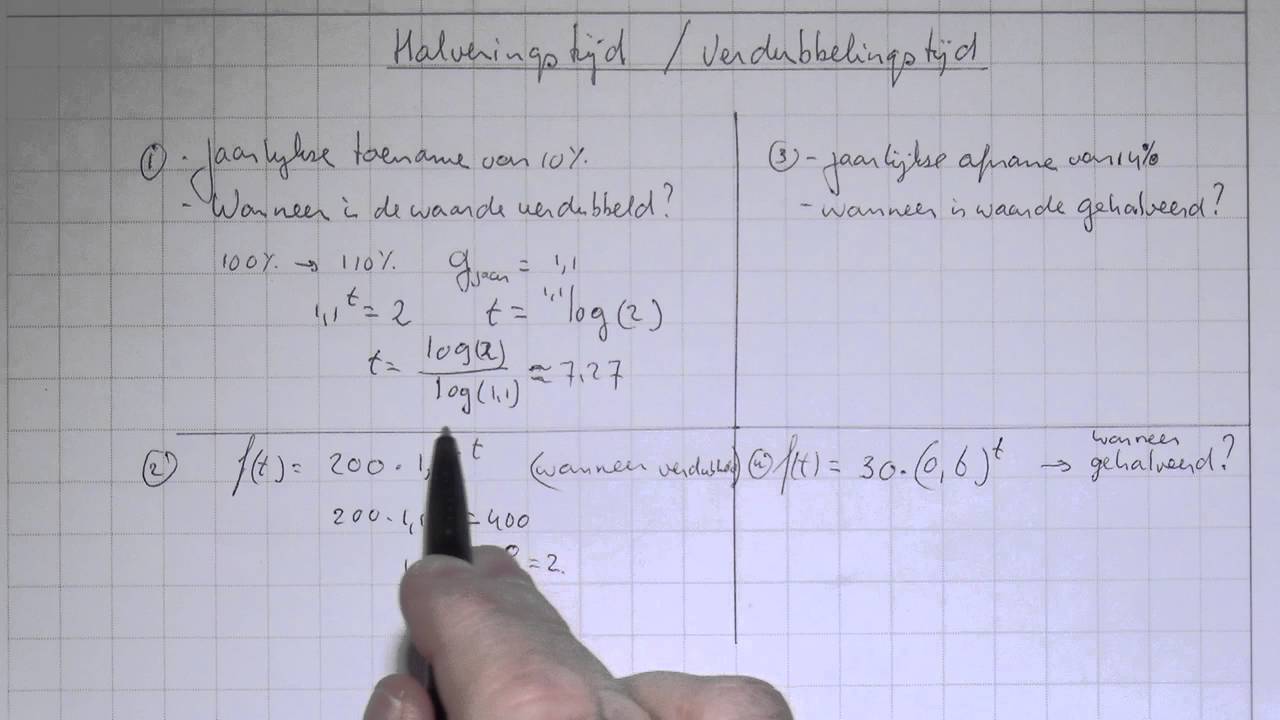 Halveringstijd / Verdubbelingstijd
① - Jaarlijkse toename van 10%.
- Wanneer is de waarde verdubbeld?
100% → 110% g jaar = 1,1
1,1^t = 2 t = ^1,1 log(2)
t = log(2) / log(1,1) ≈ 7,27
② f(t) = 200 · 1, t (wanneer verdubbeld)
200 · 1,1 = 400
= 2.
③ - jaarlijkse afname van 14%
- wanneer is waarde gehalveerd?
④ f(t) = 30 · (0,6)^t → wanneer
gehalveerd?